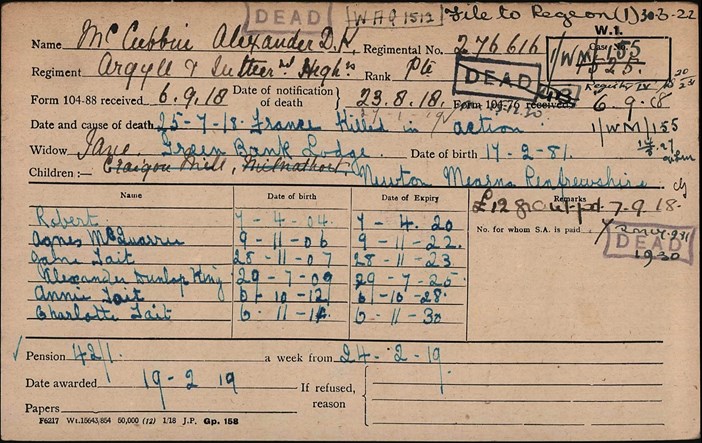 DEAD WHQ 1512 File to Reg on (1) 30-3-22
W.1.
Name McCubbin Alexander D.K. Regimental No. 276616 1/WM/155
Regiment Argyll & Suther'nd Highrs Rank Pte DEAD
Form 104-88 received 6.9.18 Date of notification of death 23.8.18. Form 104-76 received 6.9.18
Date and cause of death 25-7-18 France Killed in action 1/WM/155
Widow Jane. Green Bank Lodge. Date of birth 17-2-81.
Children :— Craigow Mill, Milnathort. Newton Mearns Renfrewshire.
Name Date of birth Date of Expiry Remarks
£12 grant pd. 7.9.18.
Robert 7-4-04. 7-4.20
No. for whom S.A. is paid
Agnes McQuarrie 9-11-06 9-11-22.
DEAD
Jane Tait 28-11-07 28-11-23
1930
Alexander Dunlop King 29-7-09 29-7-25.
Annie Tait 6-10-12 6-10-28.
Charlotte Tait 6-11-14. 6-11-30
Pension 42/1. a week from 24-2-19.
Date awarded 19-2 19 If refused, reason
Papers
F6217 Wt.15643/854 50,000 (12) 1/18 J.P. Gp. 158